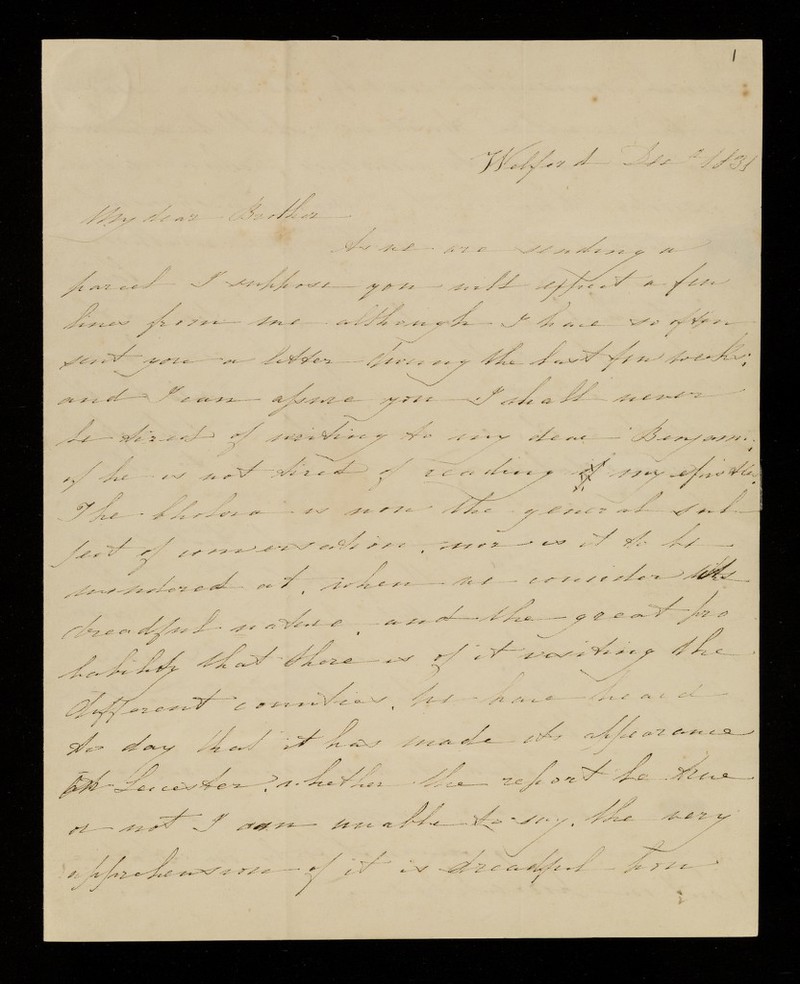 1
Welford Dec 1831
My dear Brother
As we are sending a
parcel I suppose you will expect a few
lines from me although I have so often
sent you a letter during the last few weeks,
and I can assure you I shall never
be tired of writing to my dear Benjamin,
if he is not tired of reading my epistles.
The Cholera is now the general sub
ject of conversation, nor is it to be
wondered at, when we consider its
dreadful nature, and the great pro
bability that there is of it visiting the
different counties. We have heard
to day that it has made its appearance
at Leicester, whether the report be true
or not I am unable to say. The very
apprehension of it is dreadful how